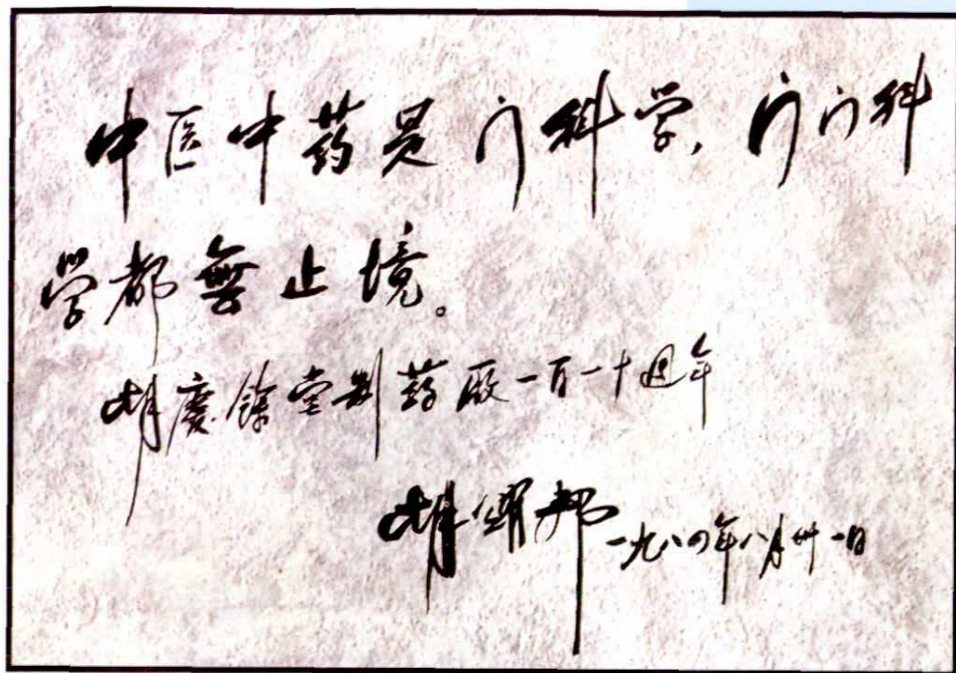 中医中药是门科学，门门科
学都無止境。
胡慶餘堂制药厰一百一十週年
胡耀邦 一九八四年八月卅一日